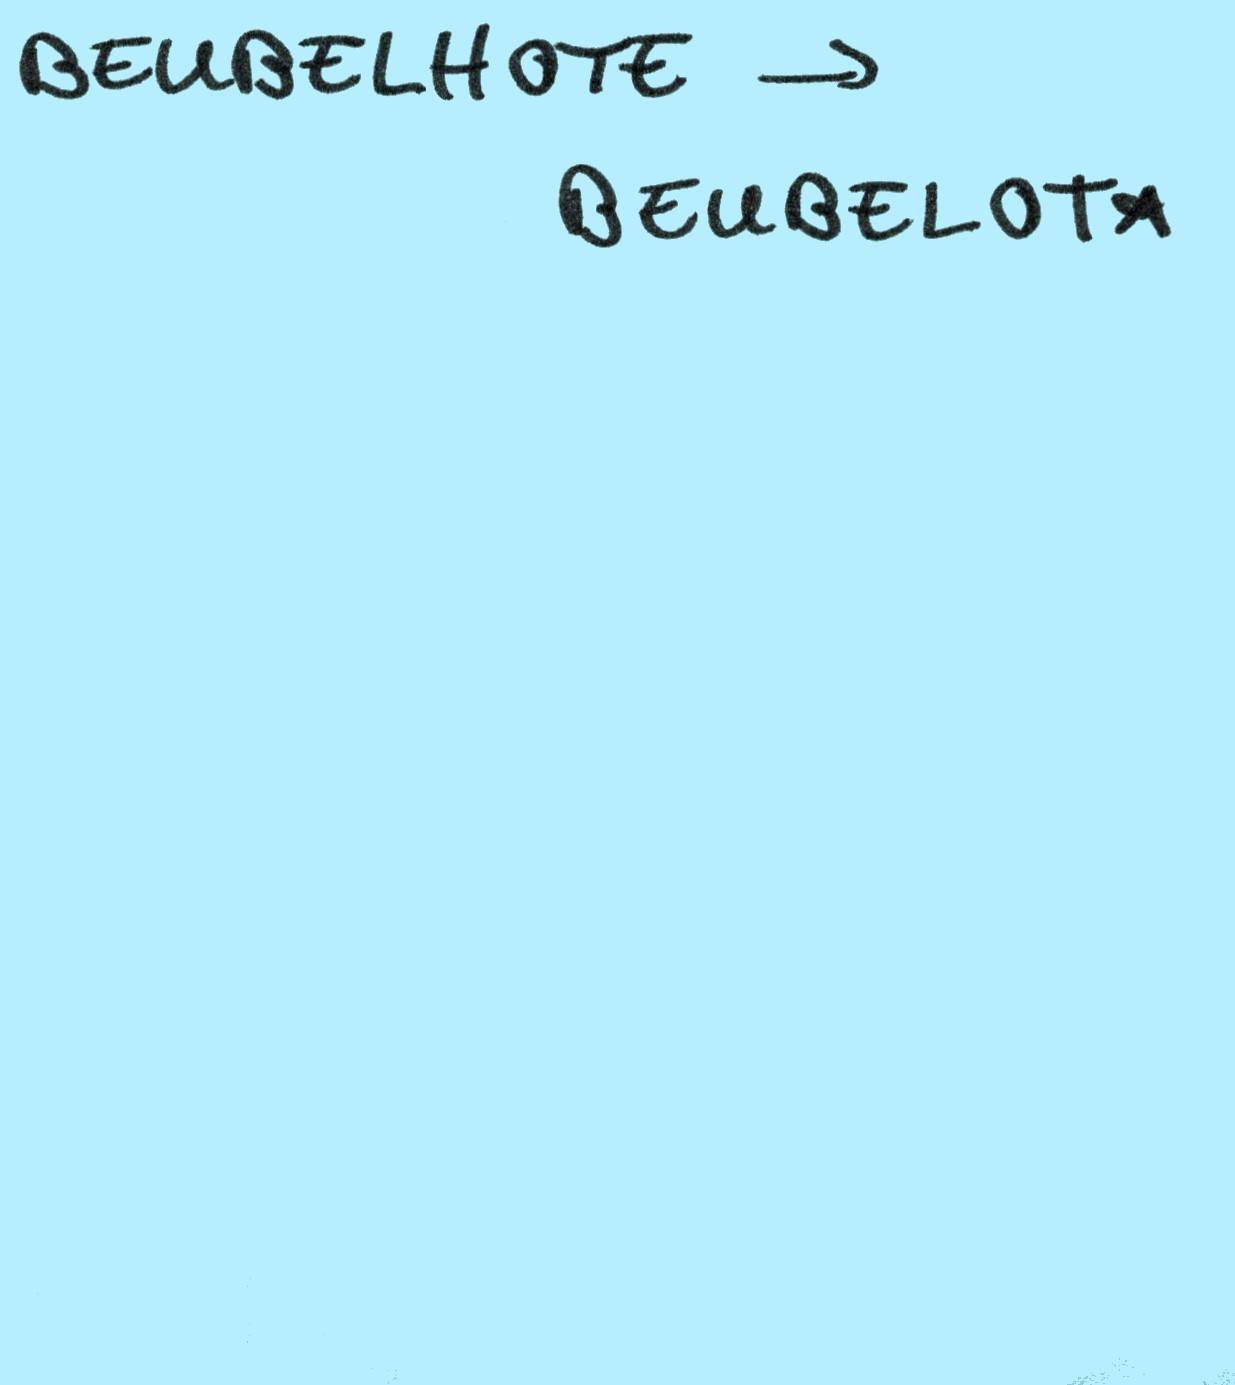 BEUBELHOTE →
BEUBELOTA